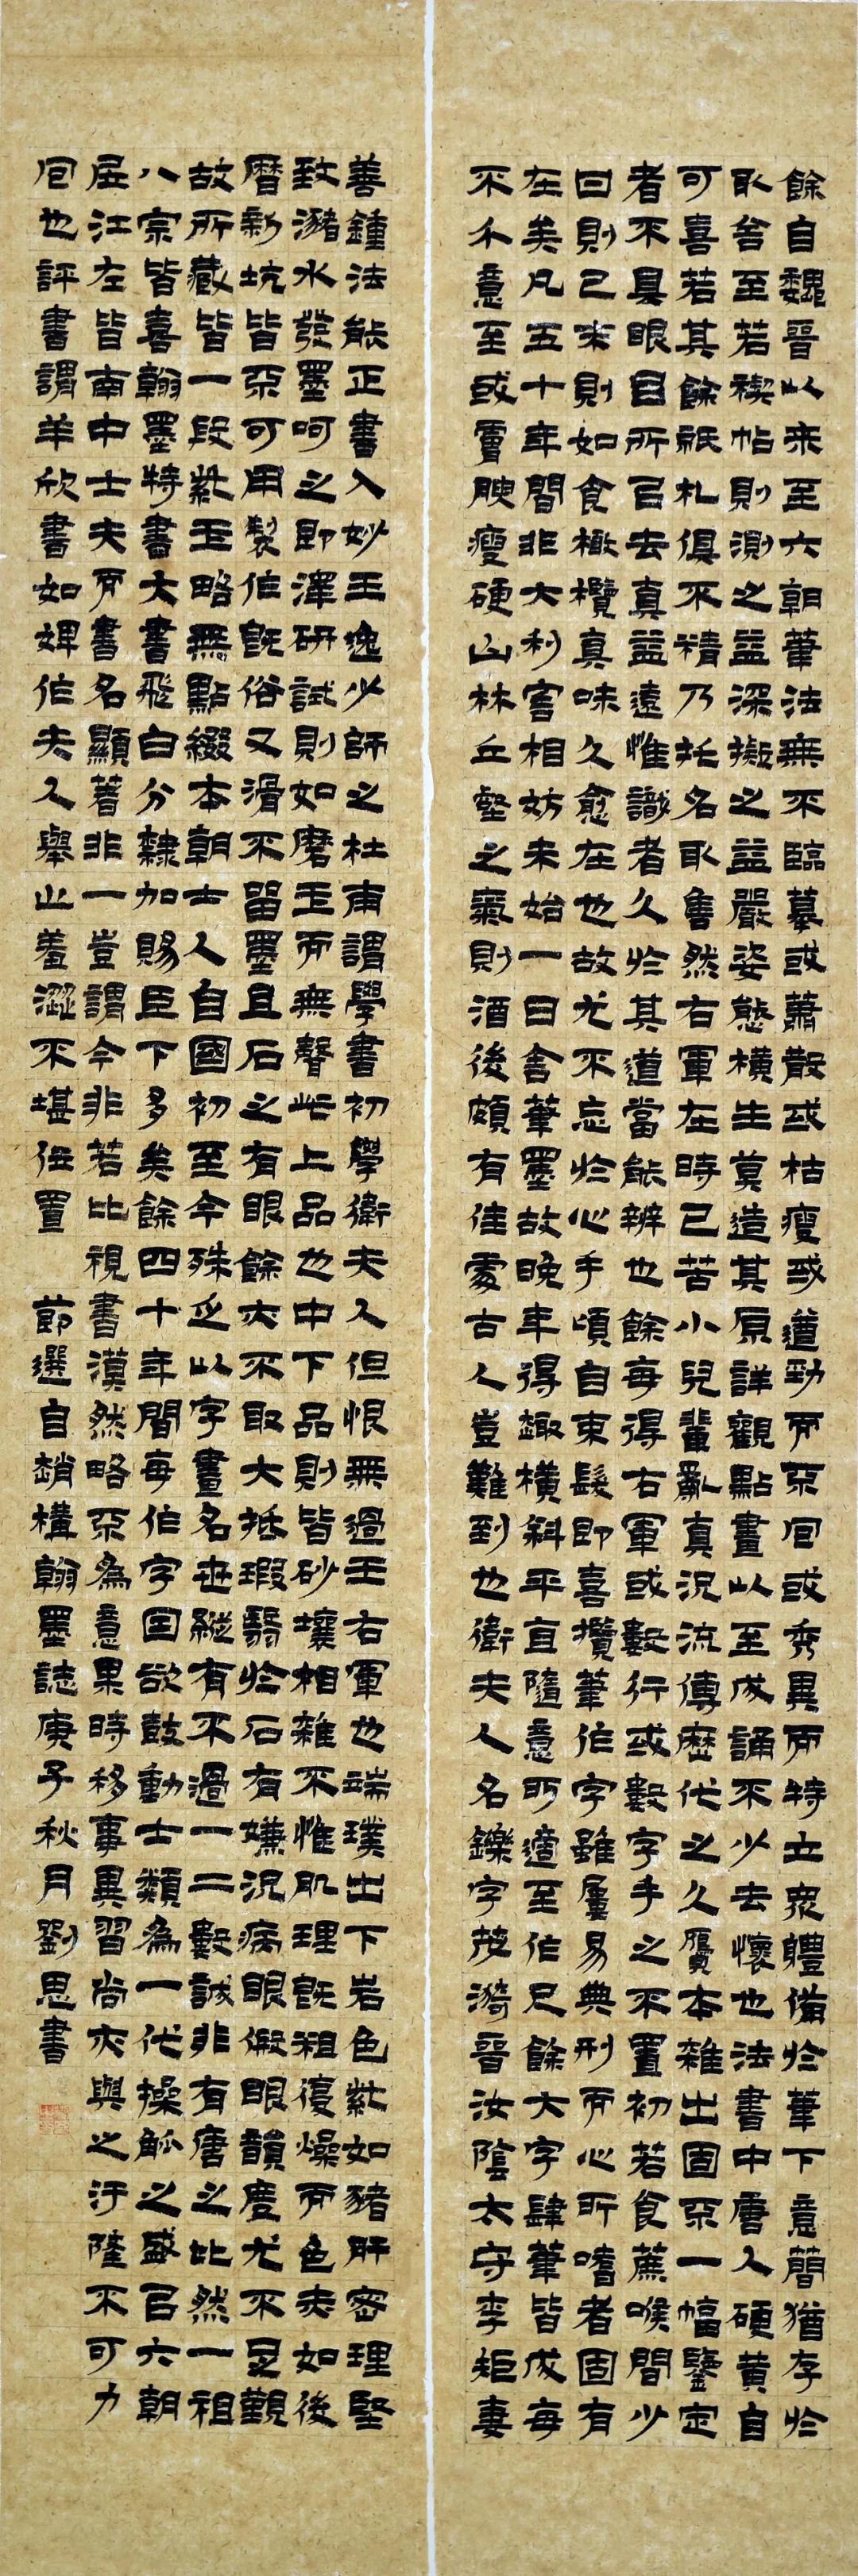 餘自魏晉以來至六朝筆法無不臨摹或蕭散或枯瘦或遒勁而不回或秀異而特立眾體備於筆下意簡猶存於
取舍至若禊帖則測之益深擬之益嚴姿態橫生莫造其原詳觀點畫以至成誦不少去懷也法書中唐人硬黃自
可喜若其餘紙札俱不精乃托名取售然右軍在時已苦小兒輩亂真況流傳歷代之久贗本雜出固不一幅鑒定
者不具眼目所以去真益遠惟識者久於其道當能辨也餘每得右軍或數行或數字手之不置初若食蔗喉間少
甘則已末則如食橄欖真味久愈在也故尤不忘於心手頃自束髮即喜攬筆作字雖屢易典刑而心所嗜者固有
在矣凡五十年間非大利害相妨未始一日舍筆墨故晚年得趣橫斜平直隨意所適至作尺餘大字肆筆皆成每
不介意至或膚腴瘦硬山林丘壑之氣則酒後頗有佳處古人豈難到也衛夫人名鑠字茂漪晉汝陰太守李矩妻
善鍾法能正書入妙王逸少師之杜甫謂學書初學衛夫人但恨無過王右軍也端璞出下岩色紫如豬肝密理堅
致瀦水發墨呵之即澤研試則如磨玉而無聲此上品也中下品則皆砂壤相雜不惟肌理既粗復燥而色赤如後
曆新坑皆不可用製作既俗又滑不留墨且石之有眼餘亦不取大抵瑕翳於石有嫌況病眼假眼韻度尤不足觀
故所藏皆一段紫玉略無點綴本朝士人自國初至今殊乏以字畫名世縱有不過一二數誠非有唐之比然一祖
八宗皆喜翰墨特書大書飛白分隸加賜臣下多矣餘四十年間每作字因欲鼓動士類為一代操觚之盛以六朝
居江左皆南中士夫而書名顯著非一豈謂今非若比視書漠然略不為意果時移事異習尚亦與之汙隆不可力
回也評書謂羊欣書如婢作夫人舉止羞澀不堪位置 節選自趙構翰墨誌庚子秋月劉思書